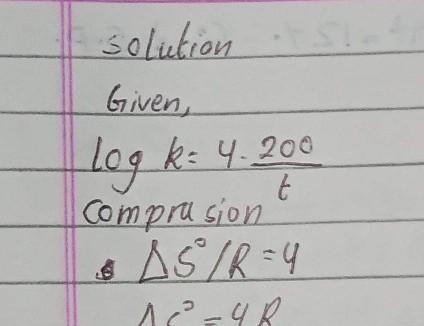 solution
Given,
log k = 4 - 200/t
comprasion
ΔS°/R = 4
ΔS° = 4R